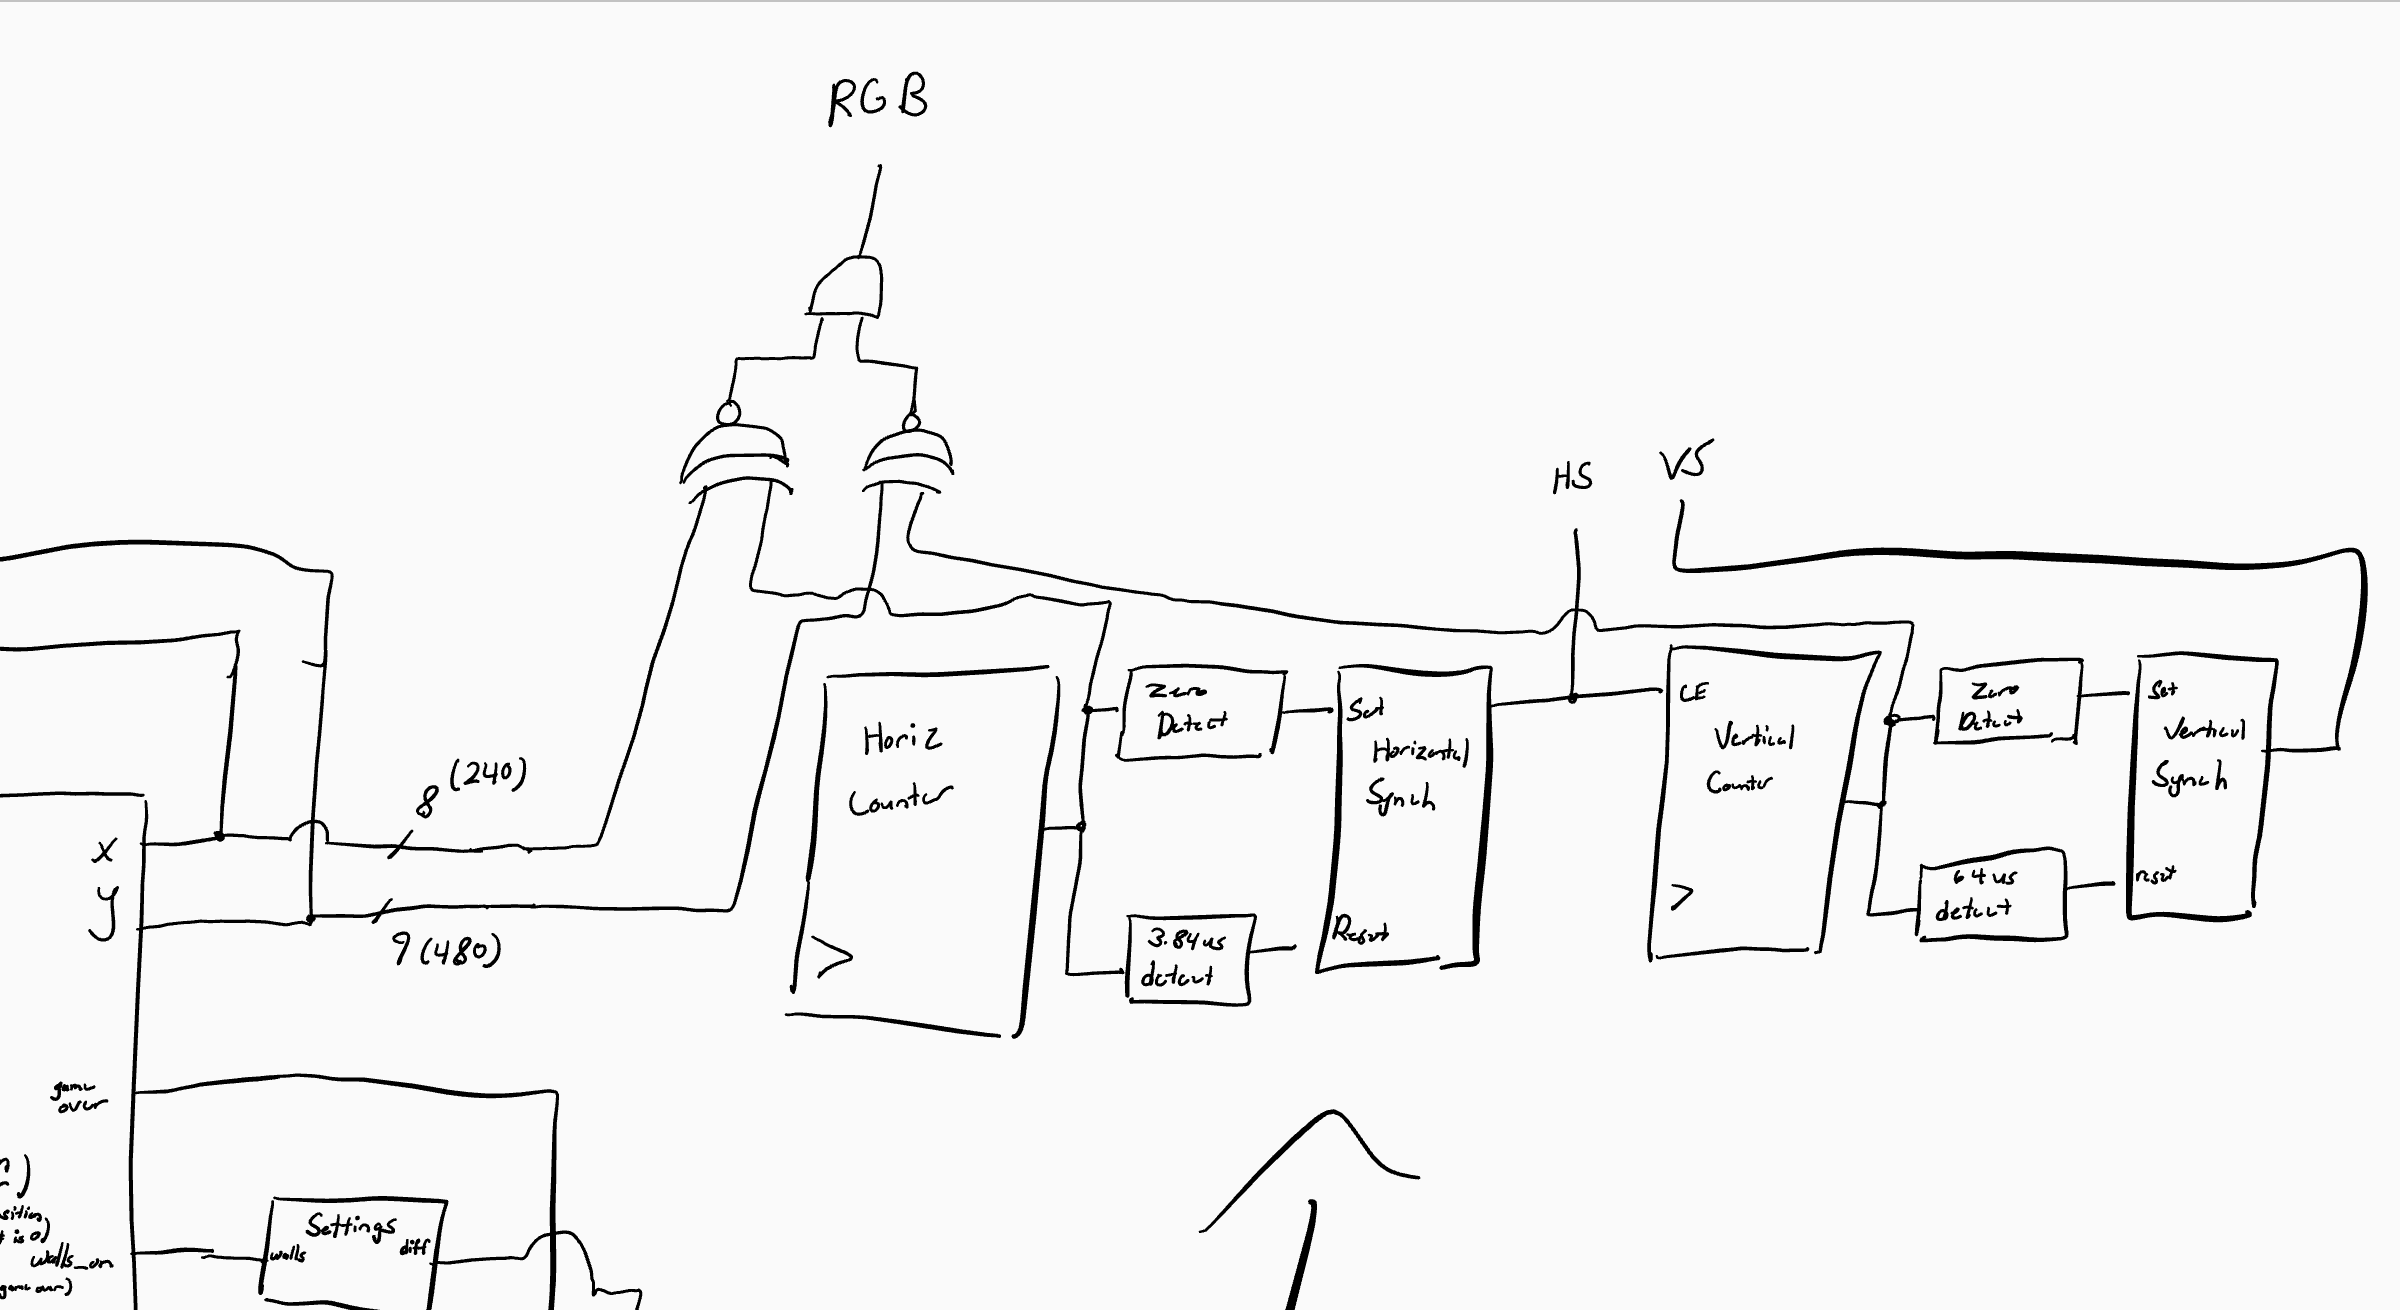 RGB
HS
VS
8 (240)
x
y
9 (480)
Horiz
Counter
>
Zero
Detect
3.84us
detect
Set
Horizontal
Synch
Reset
CE
Vertical
Counter
>
Zero
Detect
64us
detect
Set
Vertical
Synch
reset
game
over
is 0)
walls_on
game over)
Settings
walls
diff